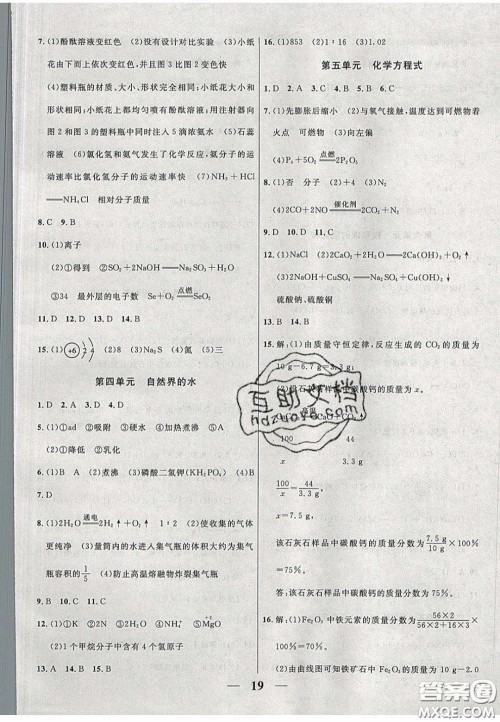 7. (1)酚酞溶液变红色 (2)没有设计对比实验 (3)小纸
花由下而上依次变红色,且图3比图2变色快
(4)塑料瓶的大小、形状完全相同;小纸花的大小、材
质、形状完全相同;小纸花上都均匀喷有酚酞溶液;用注射器向
图2和图3的塑料瓶中同时注入5滴浓氨水 (5)石蕊
溶液 (6)氯化氢和氨气发生了化学反应,氨分子的运
动速率比氯化氢分子的运动速率快 (7)NH₃+HCl
══NH₄Cl 相对分子质量
8. C 9. B
10. (1)离子
(2)①得到 ②SO₂+2NaOH══Na₂SO₃+H₂O
③34 最外层的电子数 Se+O₂ 点燃══ SeO₂
11. D 12. D 13. A 14. D
15. (1)+6 2 4 (2)8 (3)Na₂S (4)氮 (5)三
第四单元 自然界的水
1. D 2. A 3. D 4. D
5. (1)①ad ②吸附 (2)①硬水 ②加热煮沸 (3)①溶
解 ②降低 ③乳化
6. (1)B A (2)煮沸 (3)磷酸二氢钾(KH₂PO₄) (4)B
7. D
8. (1)2H₂O 通电══ 2H₂↑+O₂↑ 1∶2 (2)使收集的气体
更纯净 (3)量筒内的水进入集气瓶的体积大约为集气
瓶容积的1/5 (4)防止高温熔融物炸裂集气瓶
9. B 10. B 11. C
12. (1)①K ②NH₄⁺ ③Ne ④S²⁻ ⑤MgO(+2)
(2)1个甲烷分子中含有4个氢原子
13. A 14. A 15. D
16. (1)853 (2)1∶16 (3)1.02
第五单元 化学方程式
1. C 2. C 3. A 4. B 5. B 6. C
7. (1)先膨胀后缩小 (2)与氧气接触,温度达到可燃物着
火点 可燃物 (3)向左偏
(4)P₄+5O₂ 点燃══
8. A 9. D
10. (1)否 分子 (2)+4 (3)N₂
(4)2CO+2NO 催化剂══ N₂+2CO₂
11. B 12. D 13. C
14. (1)NaCl (2)2CaO₂+2H₂O══2Ca(OH)₂+O₂↑
(3)2NaOH+CuSO₄══Na₂SO₄+Cu(OH)₂↓
硫酸钠、硫酸铜
15. B
15. 解:(1)由质量守恒定律,反应生成的CO₂的质量为
10 g-6.7 g=3.3 g;
(2)设石灰石样品中碳酸钙的质量为x。
高温 CaO+CO₂↑
100 44
x 3.3 g
100/x=44/3.3 g
x=7.5 g
该石灰石样品中碳酸钙的质量分数为7.5 g/10 g×100%
=75%。
答:该石灰石样品中碳酸钙的质量分数为
75%。
16. 解:(1)Fe₂O₃中铁元素的质量分数为56×2/(56×2+16×3)
×100%=70%。
(2)由曲线图可知铁矿石中Fe₂O₃的质量为10 g-2.0
19
互助文档
hdzuoye.com
答案圈
MXQE.COM